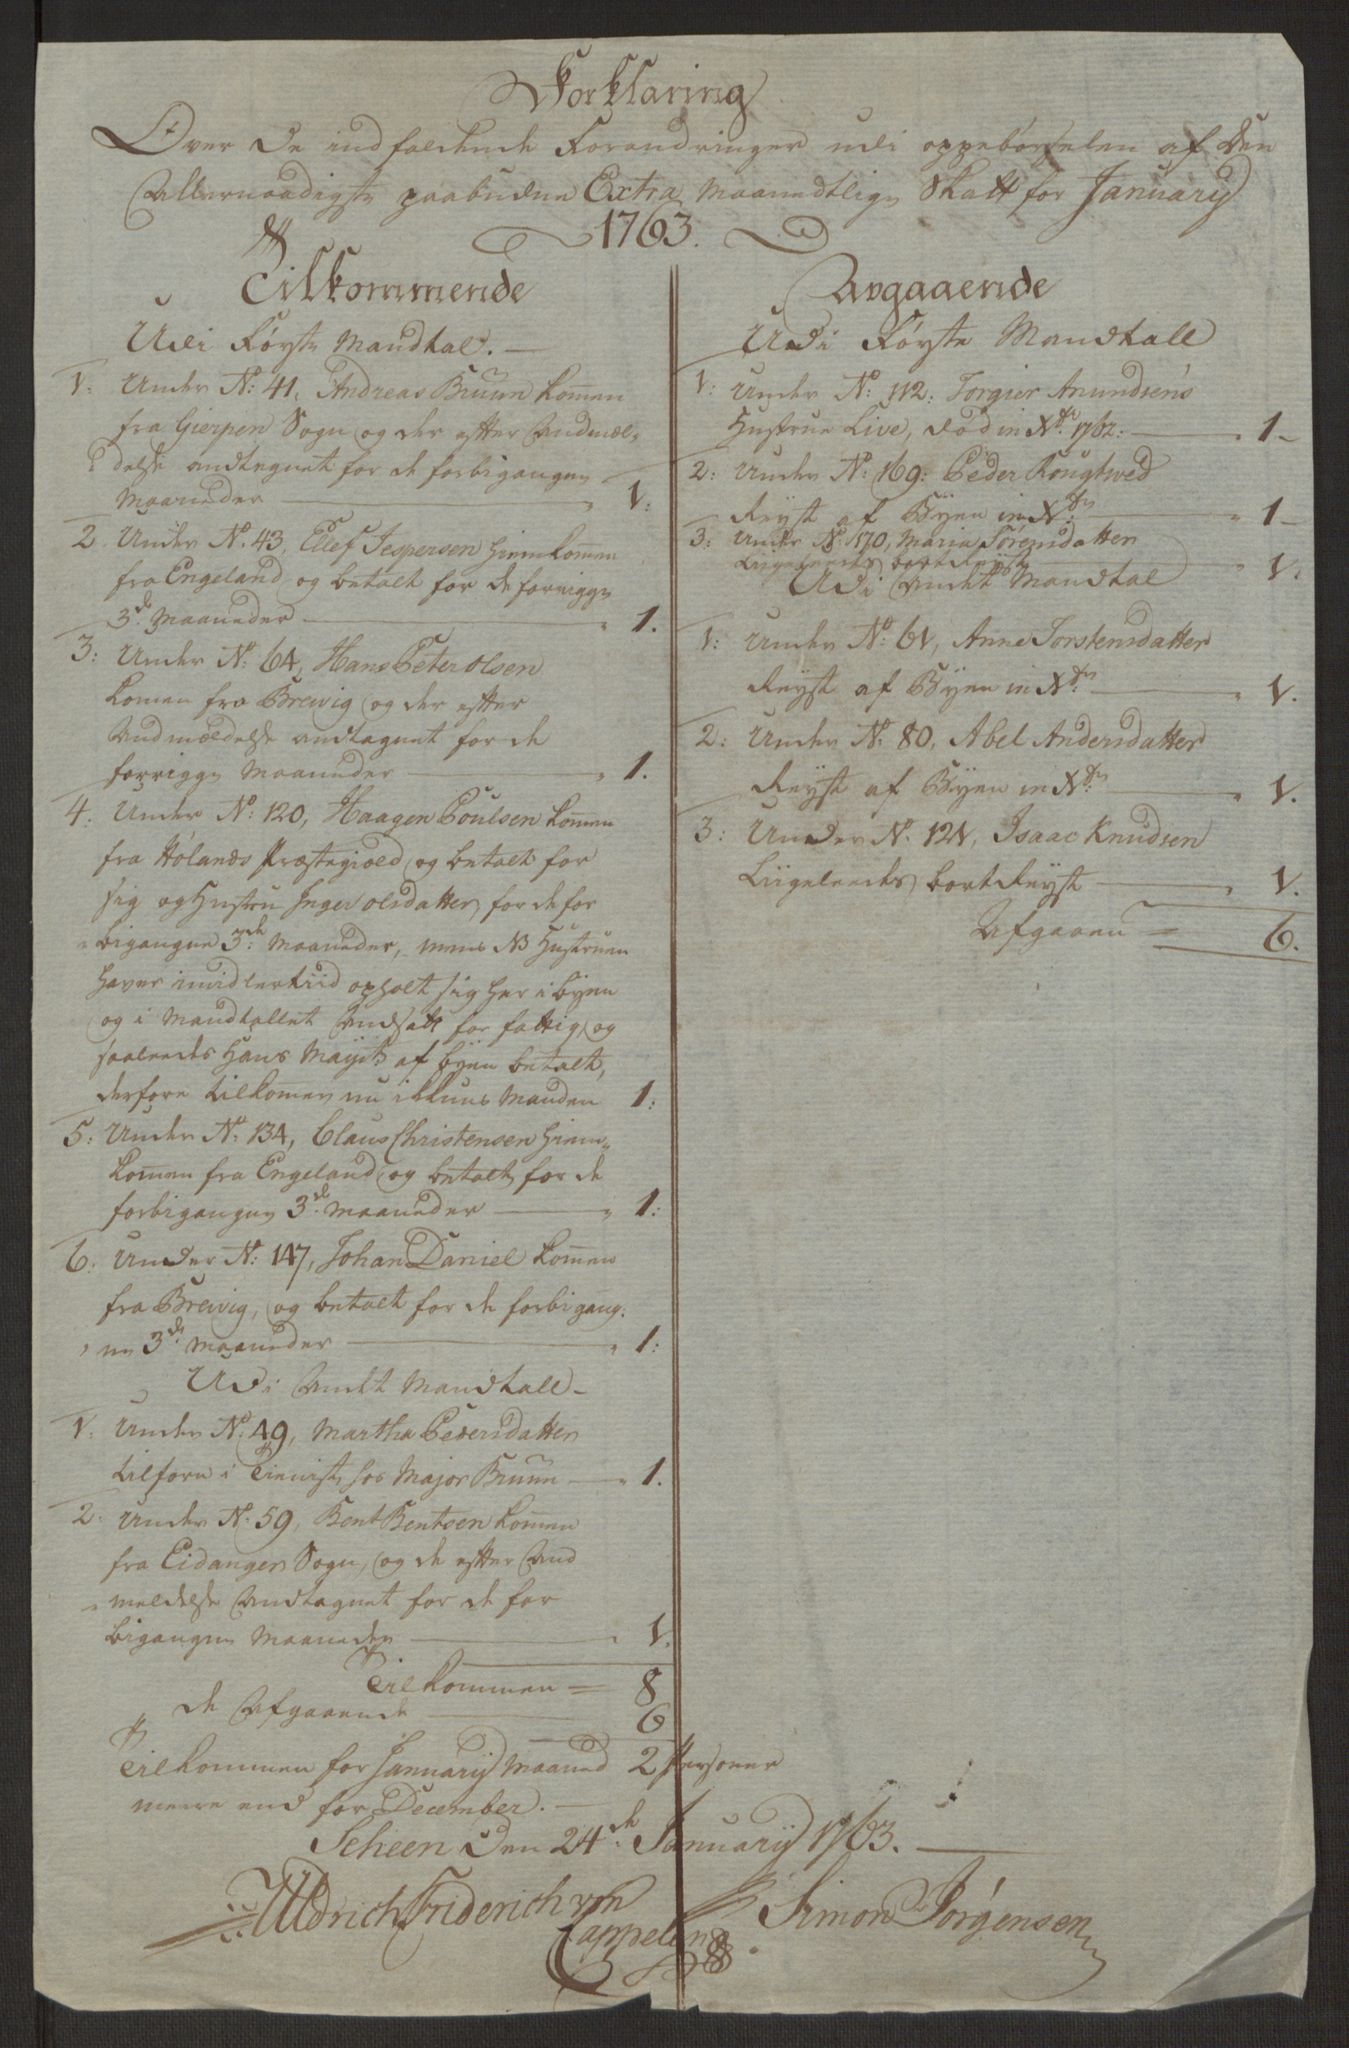 Forklaring
Over de indfaldende Forandringer udi oppebørselen af den
Allernaadigste paabudne Extra Maanedtlige Skatt for January
1763.
Tilkommende
Udi Første Mandtal.
1. Under No: 41, Andreas Bruun komen
fra Gierpen Sogn og der efter Andmæl-
delse andtegnet for de forbigangen
Maaneder 1.
2. Under No. 43, Ellef Jespersen hiemkomen
fra Engeland og betalt for de forrigge
3de Maaneder 1.
3: Under No: 64, Hans Peter Olsen
komen fra Brevig og der efter
Andmældelse andtagnet for de
forrigge Maaneder 1.
4. Under No: 120, Haagen Poulsen komen
fra Hølands Præstegield og betalt for
sig og Hustru Inger Olsdatter for de for
bigangne 3de Maaneder, mens NB Hustruen
haver imidlertiid opholt sig her i byen
og i Mandtallet Andsatt for fattig, og
saaledes Hans af byen betalt,
derfore tilkomer nu ikkuns Manden 1:
5: Under No: 134, Claus Christensen hiem-
komen fra Engeland og betalt for de
forbigangne 3de Maaneder 1:
6: Under No: 147, Johan Daniel komen
fra Brevig, og betalt for de forbigang-
ne 3de Maaneder 1:
Udi Andet Mandtall
1. Under No: 49, Martha Pedersdatter
tilforn i Tieniste hos Major Bruun 1.
2: Under No: 59, Bent Bentsen komen
fra Eidanger Sogn, og de efter And
meldelse Andtagnet for de for
bigangne Maaneder 1.
Tilkommen = 8
de Afgaaende 6
Tilkommen for January Maaned 2 Personer
meere end for December.
Avgaaende
Udi Første Mandtall
1: Under No: 112: Torgier Anundsens
Hustrue Live, død in Xbr. 1762: 1
2: Under No: 169: Peder Rougtwed
Reyst af Byen in Xbr: 1
3: Under No: 170, Maria Sørensdatter
Liigeleedes bortReyst 1.
Udi Andet Mandtal
1: Under No: 61, Anne Torstensdatter
Reyst af Byen in Xbr: 1.
2: Under No: 80, Abel Andersdatter
Reyst af Byen in Xbr: 1.
3: Under No. 121, Isaac Knudsen
Liigeleedes bortReyst 1.
Afgaaen = 6.
Scheen den 24de January 1763.
Uldrich Friderich von
Cappelen
Simon Jørgensen